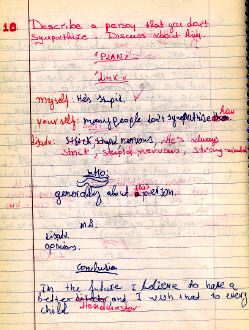 10. Describe a person that you don't
Sympathize. Discuss about him.
"PLAN"
"dink e
myself: He's stupid. ✓
yourself: many people don't sympathise him
stupid nervous, He's always
strict, stupid, nervous, strong
INTRO:
generally about this person.
M.B.
disadv.
opinions.
Conclusion
In the future I believe to have a
better and I wish that to every
child Headmaster